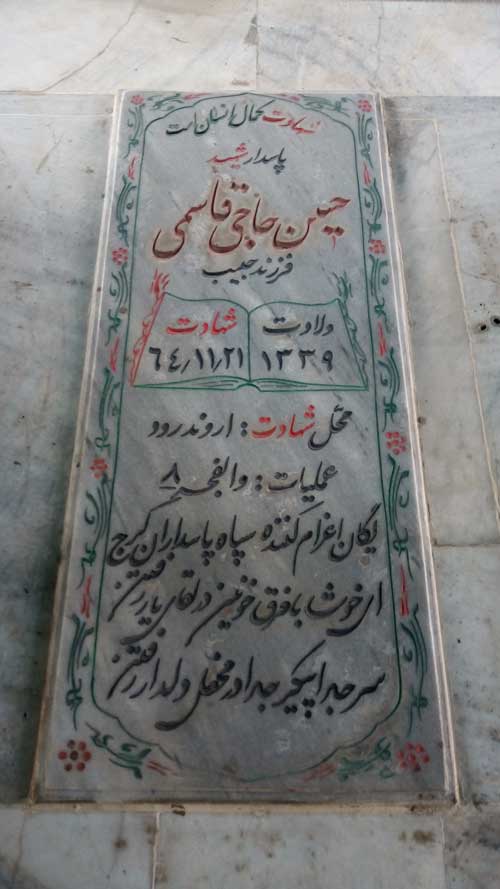 شهادت کمال انسان است
پاسدار شهید
حسین حاجی قاسمی
فرزند حبیب
ولادت شهادت
۱۳۳۹ ۶۴/۱۱/۲۱
محل شهادت: اروندرود
عملیات: والفجر ۸
یگان اعزام کننده سپاه پاسداران کرج
ای خوشا با فرق خونین در لقای یار رفتن
سر جدا پیکر جدا در محفل دلدار رفتن